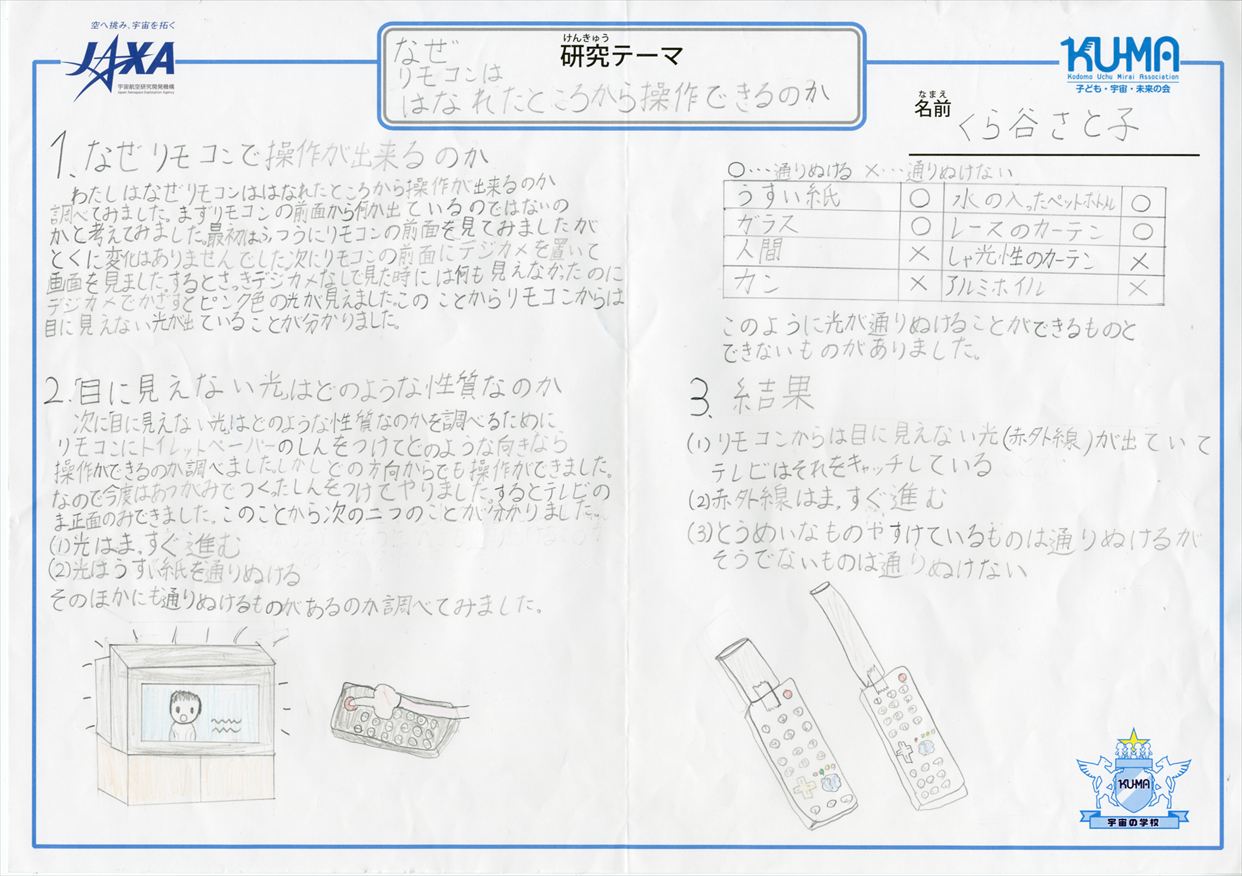 空へ挑み、宇宙を拓く
JAXA
宇宙航空研究開発機構
Japan Aerospace Exploration Agency
けんきゅう
研究テーマ
なぜ
リモコンは
はなれたところから操作できるのか
KU-MA
Kodomo Uchu Mirai Association
子ども・宇宙・未来の会
なまえ
名前
くら谷さと子
1.なぜリモコンで操作が出来るのか
わたしはなぜリモコンははなれたところから操作が出来るのか
調べてみました。まずリモコンの前面から何か出ているのではないの
かと考えてみました。最初はふつうにリモコンの前面を見てみましたが
とくに変化はありませんでした次にリモコンの前面にデジカメを置いて
画面を見ました。するとさっきデジカメなしで見た時には何も見えなかたのに
デジカメでかざすとピンク色の光が見えました。このことからリモコンからは
目に見えない光が出ていることが分かりました。
2.目に見えない光はどのような性質なのか
次に目に見えない光はどのような性質なのかを調べるために
リモコンにトイレットペーパーのしんをつけてどのような向きなら
操作ができるのか調べました。しかしどの方向からでも操作ができました。
なので今度はあつがみでつくったしんをつけてやりました。するとテレビの
ま正面のみできました。このことから次の二つのことが分かりました。
(1)光はまっすぐ進む
(2)光はうすい紙を通りぬける
そのほかにも通りぬけるものがあるのか調べてみました。
○…通りぬける ×…通りぬけない
うすい紙 ○ 水の入ったペットボトル ○
ガラス ○ レースのカーテン ○
人間 × しゃ光性のカーテン ×
カン × アルミホイル ×
このように光が通りぬけることができるものと
できないものがありました。
3.結果
(1)リモコンからは目に見えない光(赤外線)が出ていて
テレビはそれをキャッチしている
(2)赤外線はまっすぐ進む
(3)とうめいなものやすけているものは通りぬけるが
そうでないものは通りぬけない
KU-MA
宇宙の学校